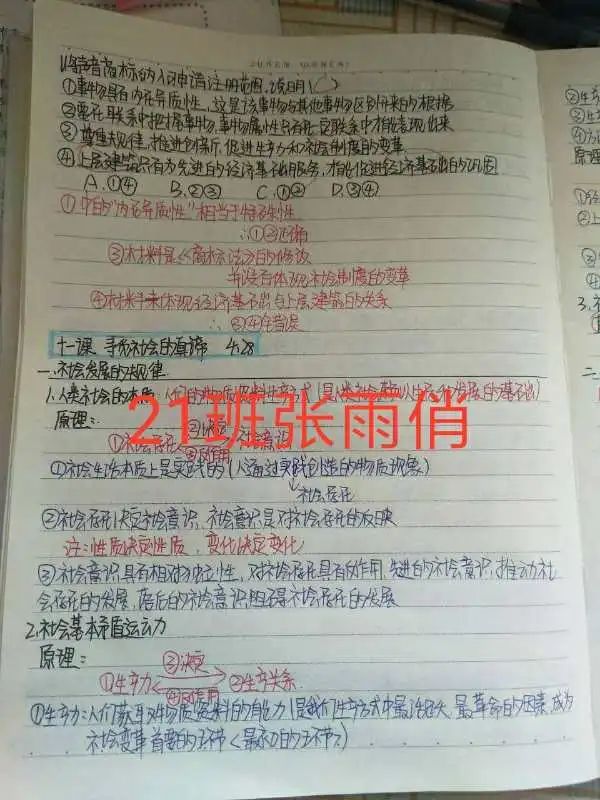 将声音商标纳入可申请注册范围,说明( )
①事物具有内在异质性,这是该事物与其他事物区别开来的根据
②要在联系中把握事物,事物属性只有在联系中才能表现出来
③尊重规律,推进创新,促进生产力和社会制度的变革
④上层建筑只有为先进的经济基础服务,才能促进经济基础的巩固
A.①④ B.②③ C.①② D.③④
①中的"内在异质性"相当于特殊性
∴①②正确
③材料是《商标法》的修改
并没有体现社会制度的变革
④材料未体现经济基础与上层建筑的关系
∴③④错误
十一课 寻觅社会的真谛 4.28
一.社会发展的规律
1.人类社会的本质:人们的物质资料生产方式(是人类社会赖以生存和发展的基础)
原理:
②决定
①社会存在 社会意识
③反作用
21班张雨俏
①社会生活本质上是实践的(人通过实践创造的物质现象)
↓社会存在
②社会存在决定社会意识,社会意识是对社会存在的反映
注:性质决定性质,变化决定变化
③社会意识具有相对独立性,对社会存在具有反作用,先进的社会意识,推动社
会存在的发展,落后的社会意识阻碍社会存在的发展
2.社会基本矛盾运动
原理:
③决定
①生产力 ②生产关系
④反作用
①生产力:人们获取物质资料的能力(是我们生产方式中最活跃、最革命的因素,成为
社会变革首要的环节<最初的环节>)